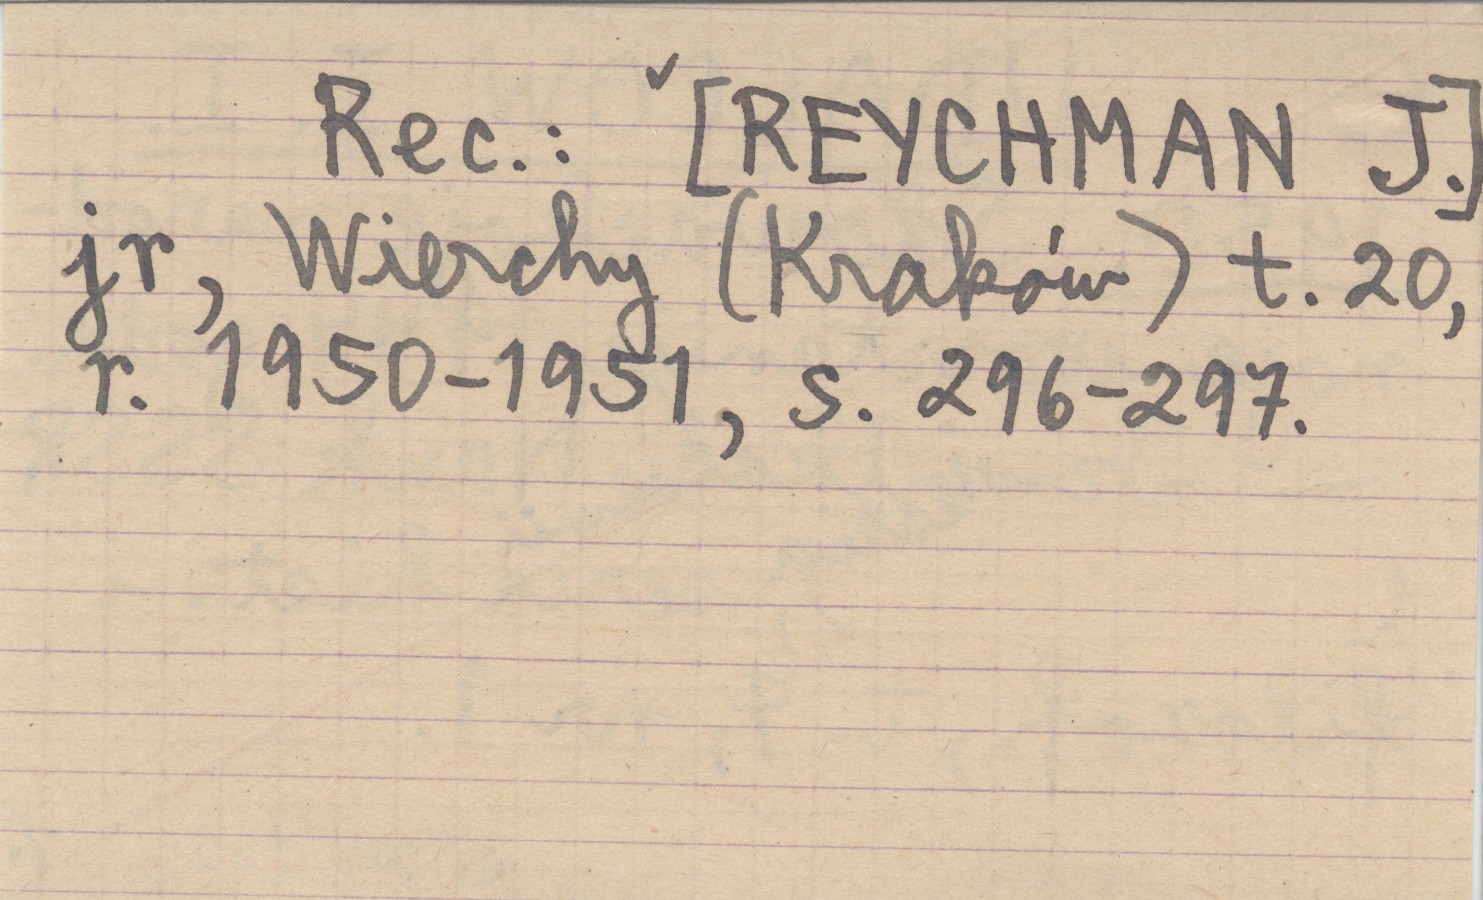 Rec.: ✓[REYCHMAN J.]
jr, Wierchy (Kraków) t. 20,
r. 1950-1951, s. 296-297.